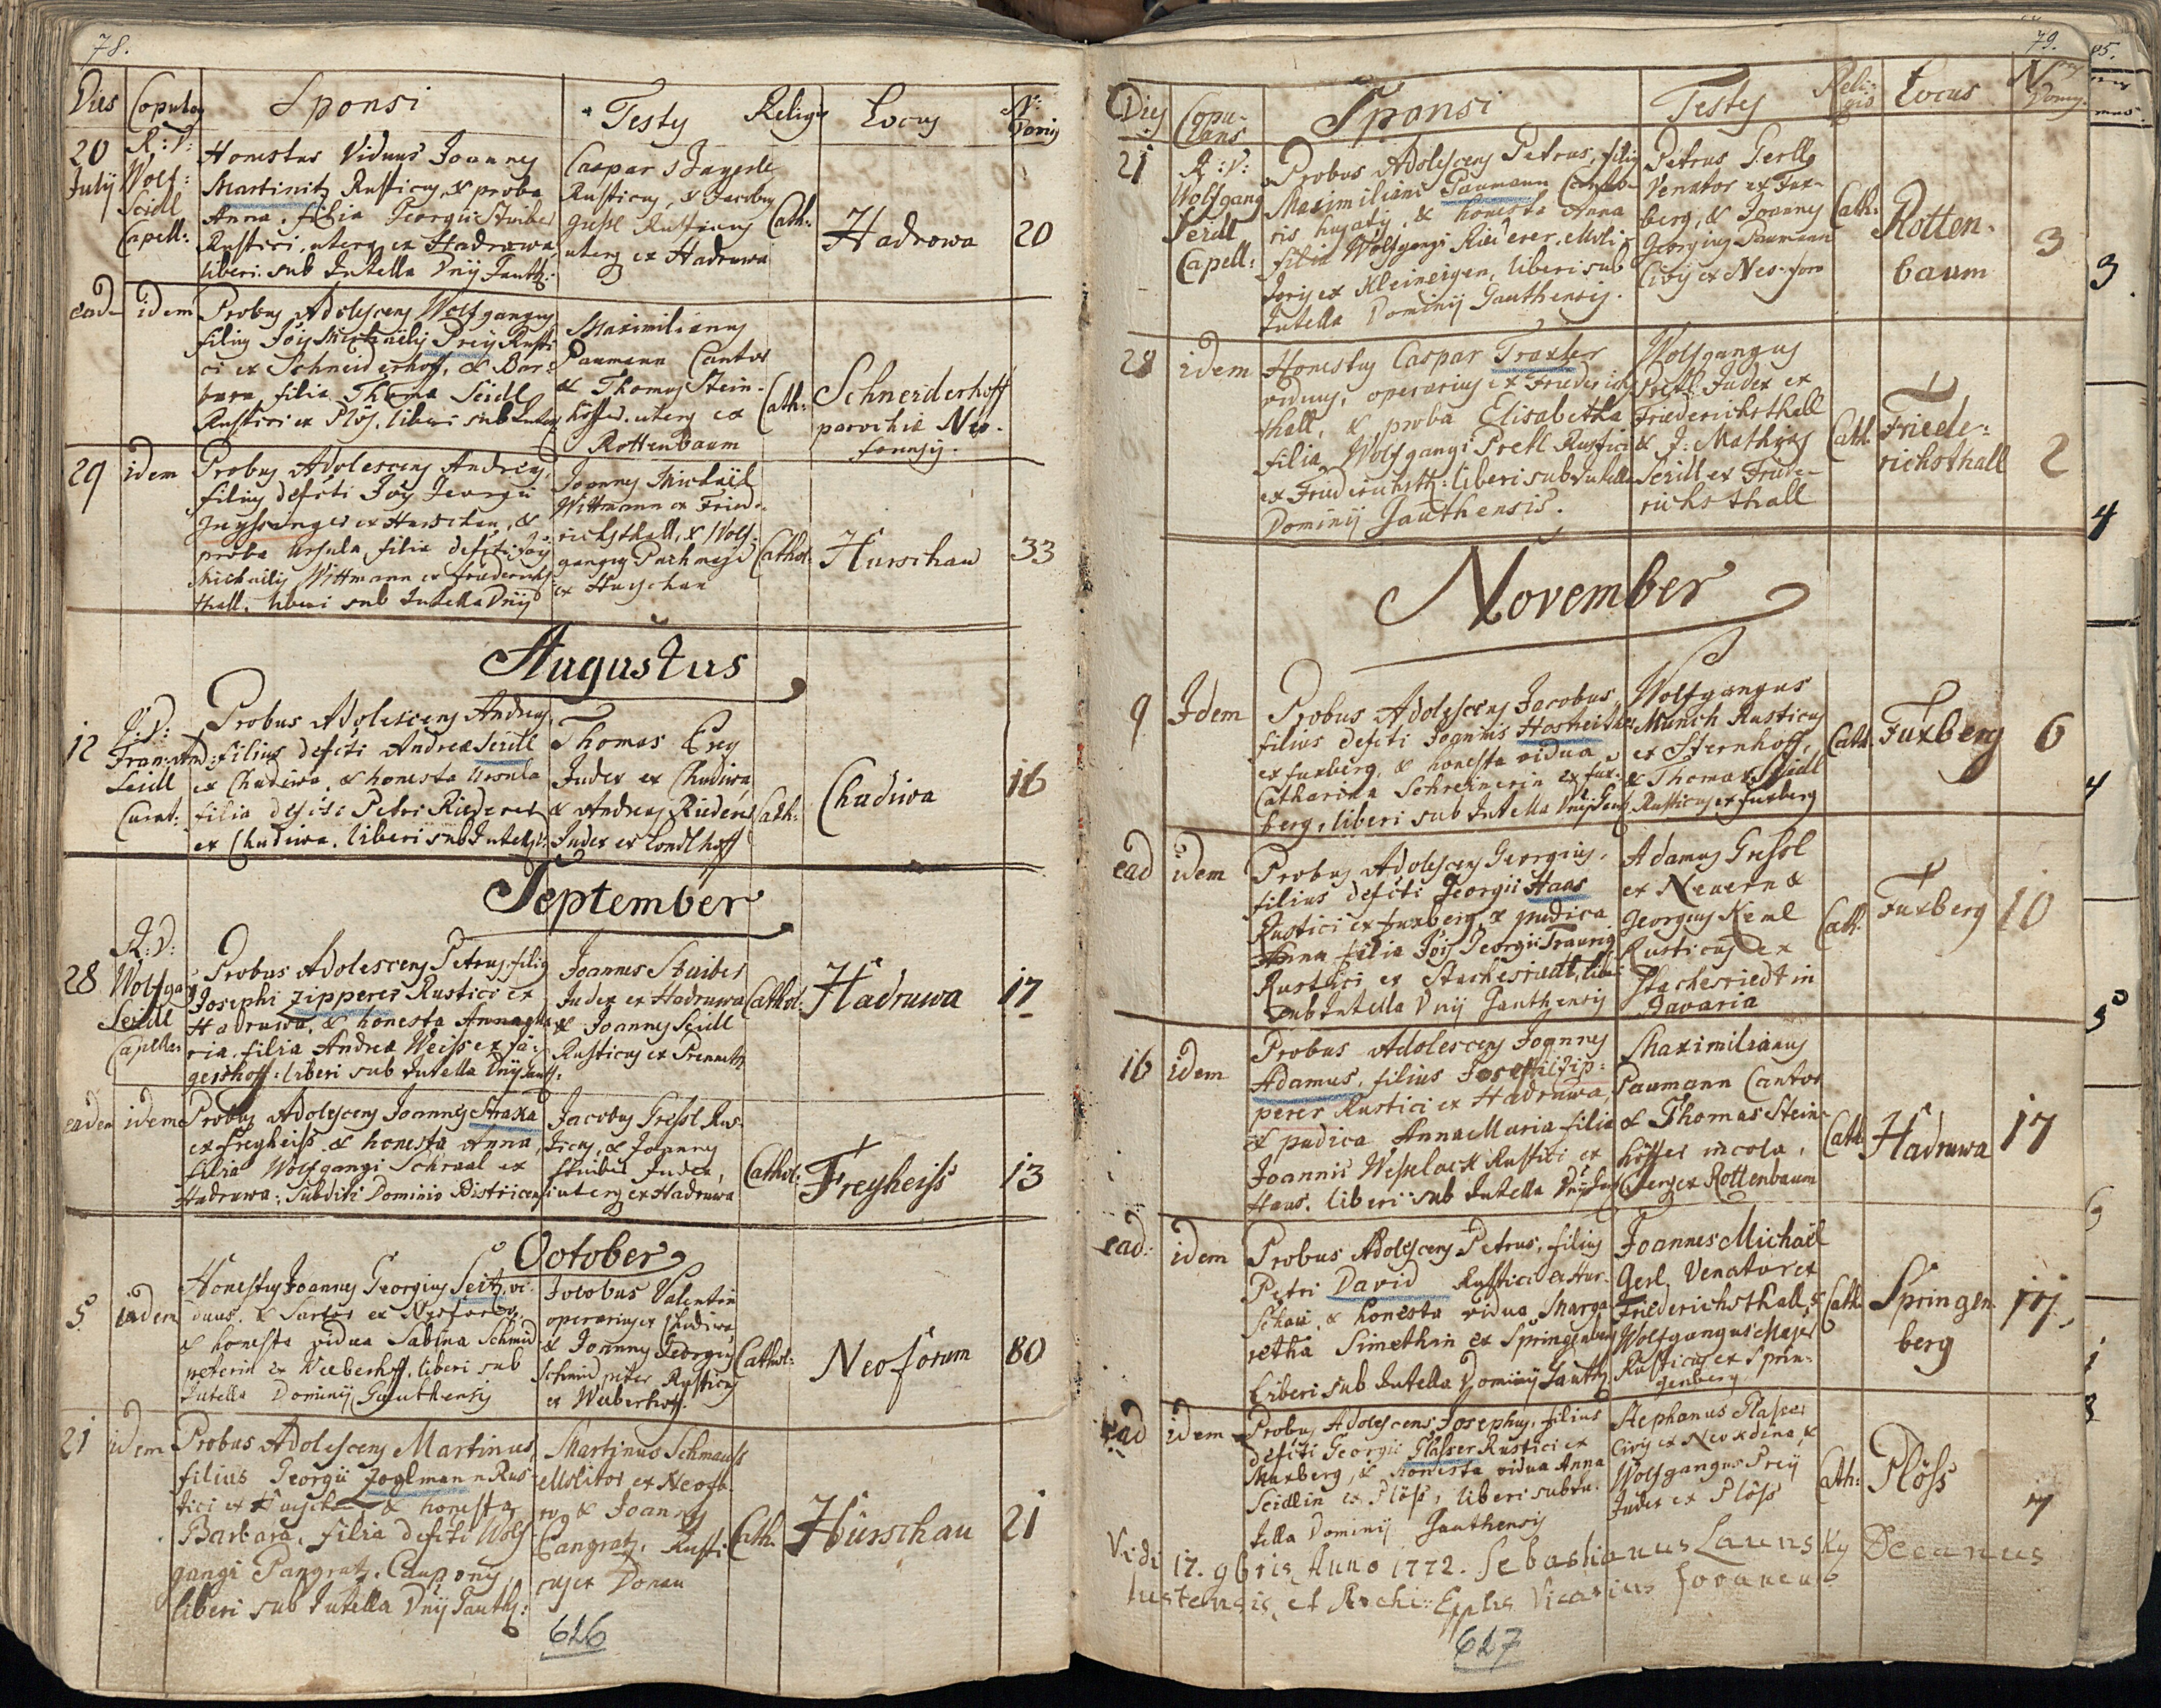 78.
Dies Copulans Sponsi Testes Religio Locus Nr: Domus
20 July
R: D: Wolf: Seidl Capell:
Honestus Viduus Joannes
Martinitz Rusticus, & proba
Anna, filia Georgii Stuiber
Rustici, uterq ex Hadruwa,
liberi sub Tutella Dnij Gauth:
Caspar
Rusticus, & Jacobus
Rusticus
uterq ex Hadruwa
Cath:
Hadrowa
20
ead idem
Probus Adolescens Wolfgangus
filius Jois Michaelis Preÿ Rusti
ci ex Schneiderhoff, & Bar:
bara filia Thoma Seidl
Rustici ex Plös. liberi sub Tutex
Maximilianus
Paumann Cantor
& Thomas Stein-
höffer. uterq ex
Rottenbaum
Cath:
Schneiderhoff
parochiæ Neo-
forensis.
29 idem
Probus Adolescens Andreas,
filius defcti Jois Georgii
ex Hurschau, &
proba Ursula, filia defcti Jois
Michaelis Wittmann ex Friederichs
thall. liberi sub Tutella Dnij
Joannes Michäel
Wittmann ex Friede-
richsthall, & Wolf-
gangus Pachmaye
ex Hurschau
Cathol:
Hurschau
33
Augustus
12
R: D: Franz: And: Seidl Curat:
Probus Adolescens Andreas,
filius defcti Andreæ Seidl
ex Chudiwa, & honesta Ursula
filia defcti Petri Riederer
ex Chudiwa. liberi sub Tutel:
Thomas Preÿ
Judex ex Chudiwa,
& Andreas Riederer
Judex ex Hondlhoff
Cath:
Chudiwa
16
September
28
R: D: Wolfgang Seidl Capellan
Probus Adolescens Petrus, filius
Josephi Zipperer Rustici ex
Hadruwa, & honesta Annama
ria. filia Andreæ Weiss ex Jä:
gershoff: liberi sub Tutella Dnij Gauth:
Joannes Stuiber
Judex ex Hadruwa
& Joannes Seidl
Rusticus ex Prenneth
Cathol:
Hadruwa
17
eadem idem
Probus Adolescens Joannes Straka
ex Freyheiss & honesta Anna,
filia Wolfgangi Schraal ex
Hadruwa: Subditi Dominio Bistricensi
Jacobus Gressl Rus-
ticus, & Joannes
Stuiber Judex,
uterq ex Hadruwa
Cathol:
Freyheiss
13
October
5 idem
Honestus Joannes Georgius Seitz, vi-
duus, & Sartor ex Neoforo,
& honesta vidua Sabina Schmid
peterin ex Weeberhoff, liberi sub
Tutella Dominij Gauthensis
Jocobus Valentin
operarius ex Chudiwa
& Joannes Georgius
Schmidpeter Rusticus
ex Weeberhoff.
Cathol:
Neoforum
80
21 idem
Probus Adolescens Martinus,
filius Georgii Zoglmann Rus-
tici ex Hurschau & honesta
Barbara, filia defcti Wolf-
gangi Pangratz, Cauponis,
liberi sub Tutella Dnij Gauth:
Martinus Schmauss
Molitor ex Neofo-
ro, & Joannes
Pangratz, Rusti
cus ex Donau
Cath:
Hürschau
21
626
79.
Dies Copulans Sponsi Testes Religio Locus Nrus Domus
21
R: D: Wolfgang Seidl Capell:
Probus Adolescens Petrus, filius
Maximiliani Paumann Canto-
ris hujatis, & honesta Anna
filia Wolfgangi Riederer Moli-
toris ex Kleineigen, liberi sub
Tutella Dominij Gauthensis.
Petrus Gerll
Venator ex Fux-
berg, & Joannes
Georgius Paumann
Civis ex Neo-foro
Cath:
Rotten-
baum
3
28 idem
Honestus Caspar Traxler
viduus, operarius ex Friederichs
thall, & proba Elisabetha
filia Wolfgangi Pretl Rustici
ex Friederichsth: liberi sub Tutella
Dominij Gauthensis.
Wolfgangus
Pretl Judex ex
Friederichsthall
& J: Mathias
Seidl ex Friede-
richsthall
Cath:
Friede-
richsthall
2
November
9 Idem
Probus Adolescens Jacobus
filius defcti Joannis Hosneitner
ex Fuxberg, & honesta vidua
Catharina Schreinerin ex Fux-
berg, liberi sub Tutella Dnij Gauth
Wolfgangus
Münch Rusticus
ex Sternhoff,
& Thomas Seidl
Rusticus ex Fuxberg
Cath:
Fuxberg
6
ead idem
Probus Adolescens Georgius,
filius defcti Georgii Haas
Rustici ex Fuxberg, & pudica
Anna filia Jois Georgii Traurig
Rustici ex Stachesriedt, libe
sub Tutella Dnij Gauthensis
Adamus Gressl
ex Neuern &
Georgius Keml
Rusticus ex
Stachesriedt in
Bavaria
Cath:
Fuxberg
10
16 idem
Probus Adolescens Joannes
Adamus, filius Josephi Zip-
perer Rustici ex Hadruwa,
& pudica Anna Maria filia
Joannis Wesselack Rustici ex
Haus. liberi sub Tutella Dnij Gau
Maximilianus
Paumann Cantor
& Thomas Stein-
höffer incola,
uterq ex Rottenbaum
Cath
Hadruwa
17
ead: idem
Probus Adolescens Petrus, filius
Petri David Rustici ex Hur-
schau, & honesta vidua Marga
retha Simethin ex Springenberg
Liberi sub Tutella Dominij Gauth
Joannes Michaël
Gerl, Venator ex
Friederichsthall, &
Wolfgangus Majer
Rusticus ex Sprin-
genberg
Cath:
Springen
berg
17.
ead idem
Probus Adolescens Josephus, filius
defcti Georgii Glaser Rustici ex
Maxberg, & honesta vidua Anna
Seidlin ex Plöss, liberi sub Tu-
tella Dominij Gauthensis
Stephanus Glaser
Civis ex Neoxdena, &
Wolfgangus Preÿ
Judex ex Plöss
Cath:
Plöss
7
Vidi 17. 9bris Anno 1772. Sebastianus Launsky Decanus
tustensis, et Archi-Epplis Vicarius foraneus
627